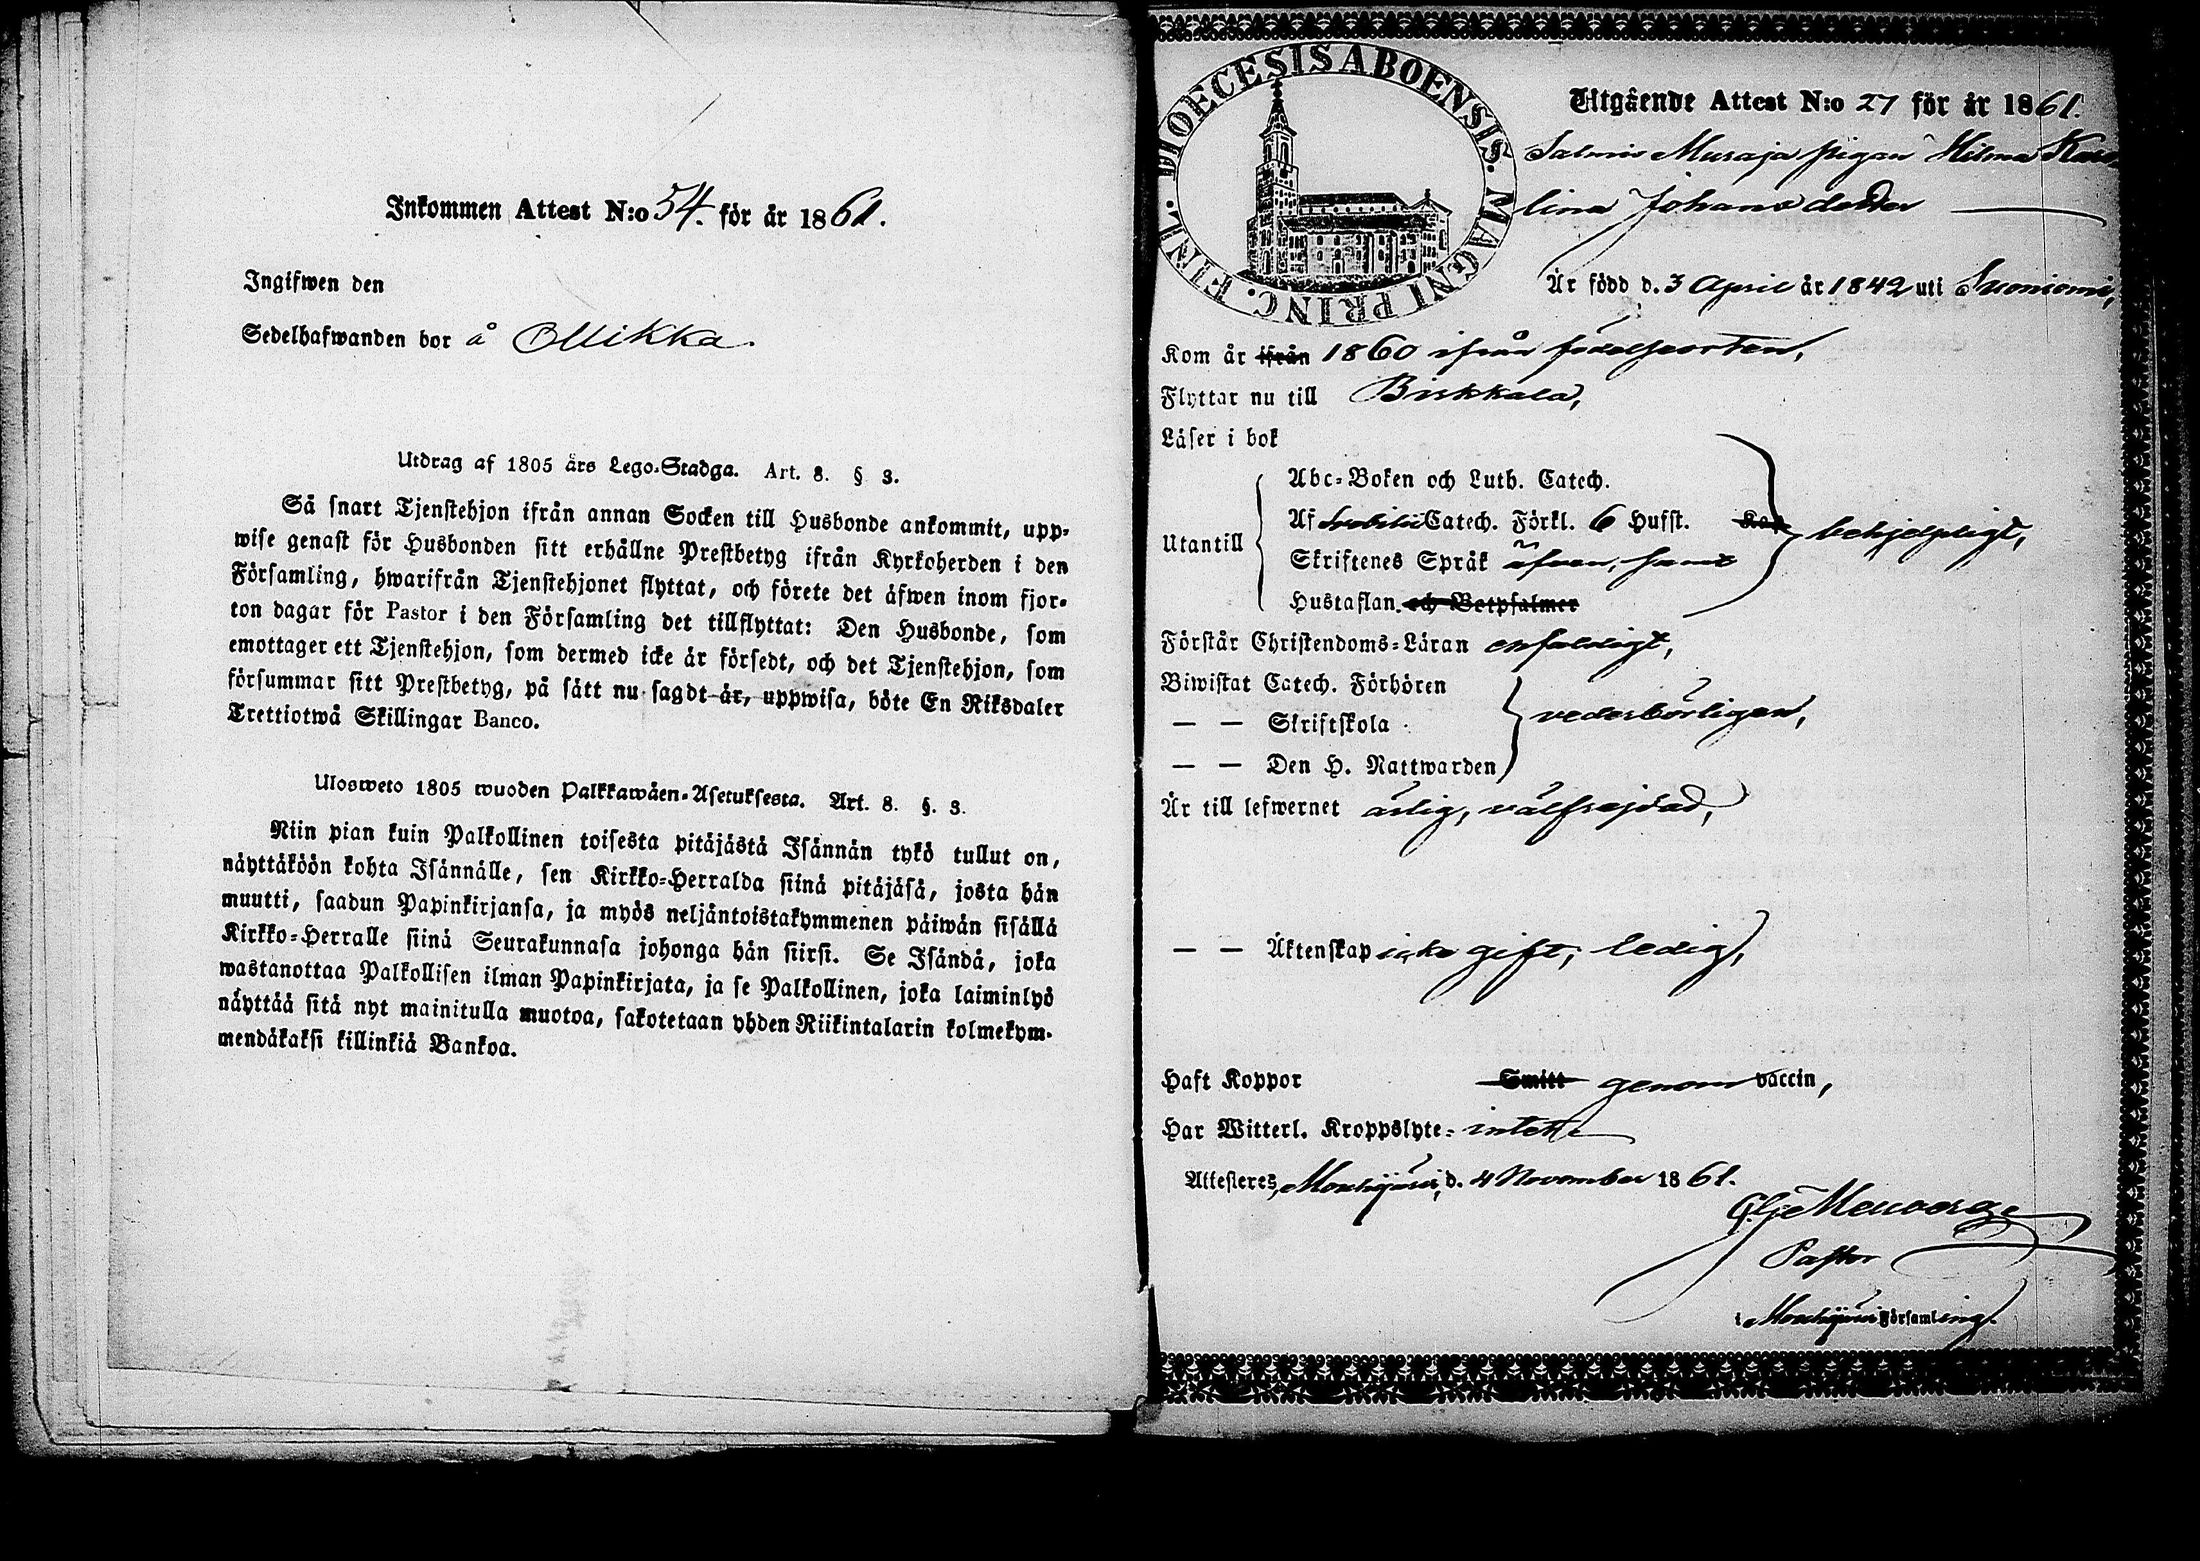 Inkommen Attest N:o 54. för år 1861.
Ingifwen den
Sedelhafwanden bor å Ollikka.
Utdrag af 1805 års Lego-Stadga. Art. 8. § 3.
Så snart Tjenstehjon ifrån annan Socken till Husbonde ankommit, upp-
wise genast för Husbonden sitt erhållne Prestbetyg ifrån Kyrkoherden i den
Församling, hwarifrån Tjenstehjonet flyttat, och förete det äfwen inom fjor-
ton dagar för Pastor i den Församling det tillflyttat: Den Husbonde, som
emottager ett Tjenstehjon, som dermed icke är försedt, och det Tjenstehjon, som
försummar sitt Prestbetyg, på sätt nu sagdt är, uppwisa, böte En Riksdaler
Trettiotwå Skillingar Banco.
Ulosweto 1805 wuoden Palkkawäen-Asetuksesta. Art. 8. §. 3.
Niin pian kuin Palkollinen toisesta pitäjästä Isännän tykö tullut on,
näyttäköön kohta Isännälle, sen Kirkko-Herralda siinä pitäjäsä, josta hän
muutti, saadun Papinkirjansa, ja myös neljäntoistakymmenen päiwän sisällä
Kirkko-Herralle siinä Seurakunnasa johonga hän siirsi. Se Isändä, joka
wastanottaa Palkollisen ilman Papinkirjata, ja se Palkollinen, joka laiminlyö
näyttää sitä nyt mainitulla muotoa, sakotetaan yhden Riikintalarin kolmekym-
mendäkaksi killinkiä Bankoa.
DIOECESIS ABOENSIS. MAGNI PRINC. FINL.
Utgående Attest N:o 27 för år 1861.
Salmis Muraja pigan Hilma Karo
lina Johansdotter
Är född d. 3 April år 1842 uti Suoniemi,
Kom år ifrån 1860 ifrån födelseorten,
Flyttar nu till Birkkala,
Läser i bok
Utantill
Abc-Boken och Luth. Catech.
Af Svebilii Catech. Förkl. 6 Hufst.
Skriftenes Språk äfven, samt
Hustaflan. och Botpsalmer
behjelpligt,
Förstår Christendoms-Läran enfaldigt,
Biwistat Catech. Förhören
— — Skriftskola
— — Den H. Nattwarden
vederbörligen,
Är till lefwernet ärlig, välfrejdad,
— — Äktenskap icke gift, ledig,
Haft Koppor Smitt genom vaccin,
Har Witterl. Kroppslyte: intet
Attesteres, Mouhijärvi, d. 4 November 1861.
Pastor
i Mouhijärvi Församling.